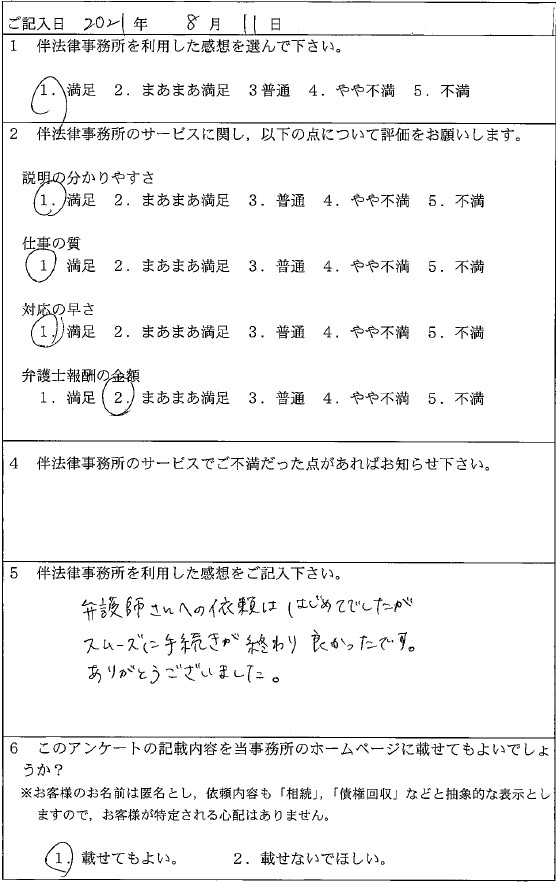 ご記入日 2021年 8月 11日
1 伴法律事務所を利用した感想を選んで下さい。
1. 満足 2. まあまあ満足 3普通 4. やや不満 5. 不満
2 伴法律事務所のサービスに関し，以下の点について評価をお願いします。
説明の分かりやすさ
1. 満足 2. まあまあ満足 3. 普通 4. やや不満 5. 不満
仕事の質
1. 満足 2. まあまあ満足 3. 普通 4. やや不満 5. 不満
対応の早さ
1. 満足 2. まあまあ満足 3. 普通 4. やや不満 5. 不満
弁護士報酬の金額
1. 満足 2. まあまあ満足 3. 普通 4. やや不満 5. 不満
4 伴法律事務所のサービスでご不満だった点があればお知らせ下さい。
5 伴法律事務所を利用した感想をご記入下さい。
弁護師さんへの依頼ははじめてでしたが
スムーズに手続きが終わり良かったです。
ありがとうございました。
6 このアンケートの記載内容を当事務所のホームページに載せてもよいでしょ
うか？
※お客様のお名前は匿名とし，依頼内容も「相続」，「債権回収」などと抽象的な表示とし
ますので，お客様が特定される心配はありません。
1. 載せてもよい。 2. 載せないでほしい。